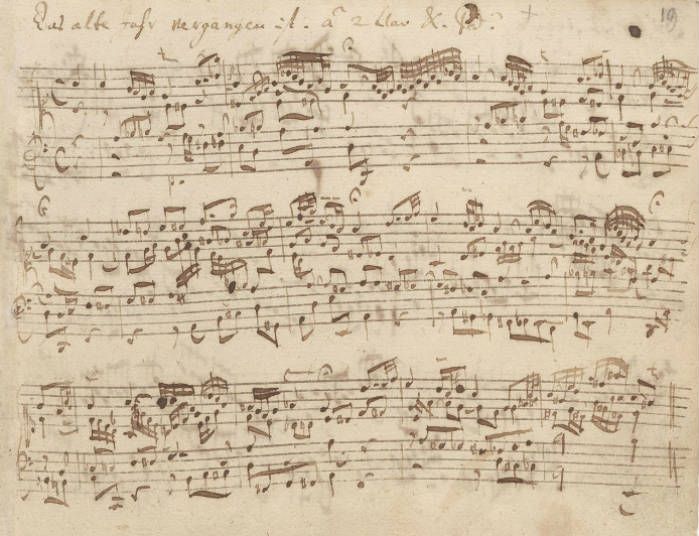 Das alte Jahr vergangen ist. â 2 Clav. &. Ped. 19